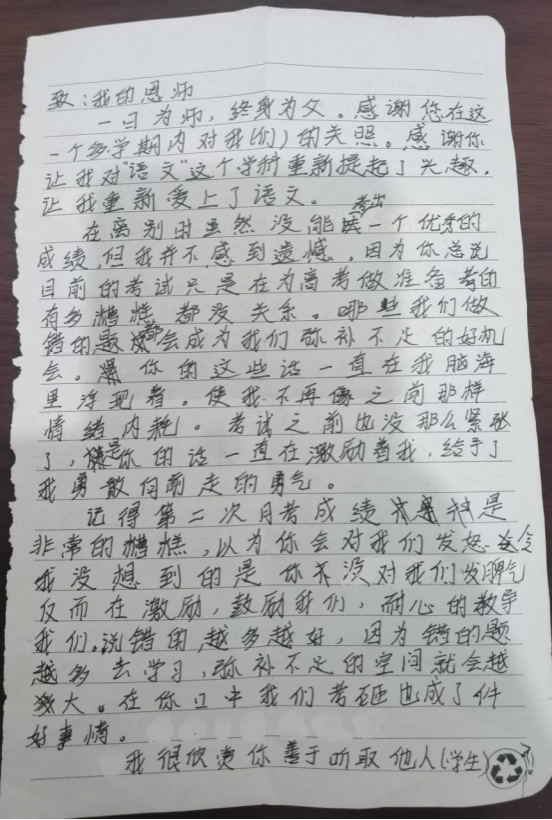 致：我的恩师
一日为师，终身为父。感谢您在这
一个多学期内对我(们)的关照。感谢你
让我对"语文"这个学科重新提起了兴趣，
让我重新爱上了语文。
在离别时虽然没能考出一个优秀的
成绩，但我并不感到遗憾，因为你总说
目前的考试只是在为高考做准备考的
有多糟糕都没关系。哪些我们做
错的题都会成为我们弥补不足的好机
会。你的这些话一直在我脑海
里浮现着。使我不再像之前那样
情绪内耗。考试之前也没那么紧张
了，是你的话一直在激励着我，给予了
我勇敢向前走的勇气。
记得第二次月考成绩是
非常的糟糕，以为你会对我们发怒。令
我没想到的是你没对我们发脾气
反而在激励，鼓励我们，耐心的教导
我们。说错的越多越好，因为错的题
越多去学习，弥补不足的空间就会越
大。在你口中我们考砸也成了件
好事情。
我很欣赏你善于听取他人(学生)